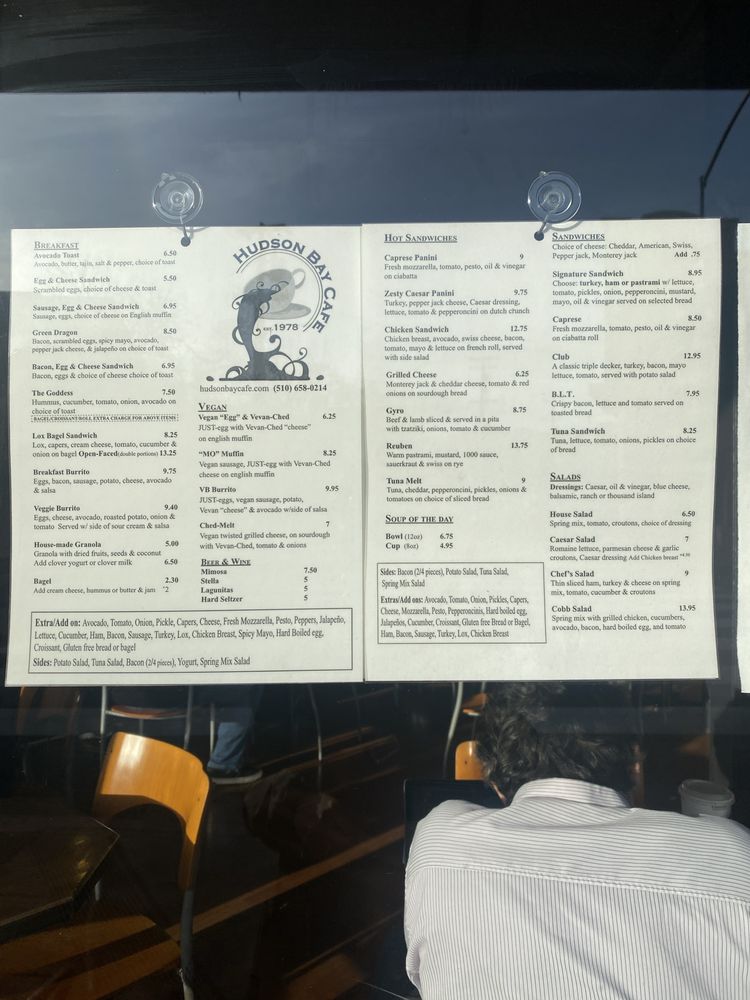 BREAKFAST
Avocado Toast 6.50
Avocado, butter, tajin, salt & pepper, choice of toast
Egg & Cheese Sandwich 5.50
Scrambled eggs, choice of cheese & toast
Sausage, Egg & Cheese Sandwich 6.95
Sausage, eggs, choice of cheese on English muffin
Green Dragon 8.50
Bacon, scrambled eggs, spicy mayo, avocado,
pepper jack cheese, & jalapeño on choice of toast
Bacon, Egg & Cheese Sandwich 6.95
Bacon, eggs & choice of cheese choice of toast
The Goddess 7.50
Hummus, cucumber, tomato, onion, avocado on
choice of toast
BAGEL/CROISSANT/ROLL EXTRA CHARGE FOR ABOVE ITEMS
Lox Bagel Sandwich 8.25
Lox, capers, cream cheese, tomato, cucumber &
onion on bagel Open-Faced(double portions) 13.25
Breakfast Burrito 9.75
Eggs, bacon, sausage, potato, cheese, avocado
& salsa
Veggie Burrito 9.40
Eggs, cheese, avocado, roasted potato, onion &
tomato Served w/ side of sour cream & salsa
House-made Granola 5.00
Granola with dried fruits, seeds & coconut
Add clover yogurt or clover milk 6.50
Bagel 2.30
Add cream cheese, hummus or butter & jam +2
HUDSON BAY CAFE
EST. 1978
hudsonbaycafe.com (510) 658-0214
VEGAN
Vegan "Egg" & Vevan-Ched 6.25
JUST-egg with Vevan-Ched "cheese"
on english muffin
"MO" Muffin 8.25
Vegan sausage, JUST-egg with Vevan-Ched
cheese on english muffin
VB Burrito 9.95
JUST-eggs, vegan sausage, potato,
Vevan "cheese" & avocado w/side of salsa
Ched-Melt 7
Vegan twisted grilled cheese, on sourdough
with Vevan-Ched, tomato & onions
BEER & WINE
Mimosa 7.50
Stella 5
Lagunitas 5
Hard Seltzer 5
Extra/Add on: Avocado, Tomato, Onion, Pickle, Capers, Cheese, Fresh Mozzarella, Pesto, Peppers, Jalapeño,
Lettuce, Cucumber, Ham, Bacon, Sausage, Turkey, Lox, Chicken Breast, Spicy Mayo, Hard Boiled egg,
Croissant, Gluten free bread or bagel
Sides: Potato Salad, Tuna Salad, Bacon (2/4 pieces), Yogurt, Spring Mix Salad
HOT SANDWICHES
Caprese Panini 9
Fresh mozzarella, tomato, pesto, oil & vinegar
on ciabatta
Zesty Caesar Panini 9.75
Turkey, pepper jack cheese, Caesar dressing,
lettuce, tomato & pepperoncini on dutch crunch
Chicken Sandwich 12.75
Chicken breast, avocado, swiss cheese, bacon,
tomato, mayo & lettuce on french roll, served
with side salad
Grilled Cheese 6.25
Monterey jack & cheddar cheese, tomato & red
onions on sourdough bread
Gyro 8.75
Beef & lamb sliced & served in a pita
with tzatziki, onions, tomato & cucumber
Reuben 13.75
Warm pastrami, mustard, 1000 sauce,
sauerkraut & swiss on rye
Tuna Melt 9
Tuna, cheddar, pepperoncini, pickles, onions &
tomatoes on choice of sliced bread
SOUP OF THE DAY
Bowl (12oz) 6.75
Cup (8oz) 4.95
Sides: Bacon (2/4 pieces), Potato Salad, Tuna Salad,
Spring Mix Salad
Extras/Add ons: Avocado, Tomato, Onion, Pickles, Capers,
Cheese, Mozzarella, Pesto, Pepperoncinis, Hard boiled egg,
Jalapeños, Cucumber, Croissant, Gluten free Bread or Bagel,
Ham, Bacon, Sausage, Turkey, Lox, Chicken Breast
SANDWICHES
Choice of cheese: Cheddar, American, Swiss,
Pepper jack, Monterey jack Add .75
Signature Sandwich 8.95
Choose: turkey, ham or pastrami w/ lettuce,
tomato, pickles, onion, pepperoncini, mustard,
mayo, oil & vinegar served on selected bread
Caprese 8.50
Fresh mozzarella, tomato, pesto, oil & vinegar
on ciabatta roll
Club 12.95
A classic triple decker, turkey, bacon, mayo
lettuce, tomato, served with potato salad
B.L.T. 7.95
Crispy bacon, lettuce and tomato served on
toasted bread
Tuna Sandwich 8.25
Tuna, lettuce, tomato, onions, pickles on choice
of bread
SALADS
Dressings: Caesar, oil & vinegar, blue cheese,
balsamic, ranch or thousand island
House Salad 6.50
Spring mix, tomato, croutons, choice of dressing
Caesar Salad 7
Romaine lettuce, parmesan cheese & garlic
croutons, Caesar dressing Add Chicken breast
Chef's Salad 9
Thin sliced ham, turkey & cheese on spring
mix, tomato, cucumber & croutons
Cobb Salad 13.95
Spring mix with grilled chicken, cucumbers,
avocado, bacon, hard boiled egg, and tomato